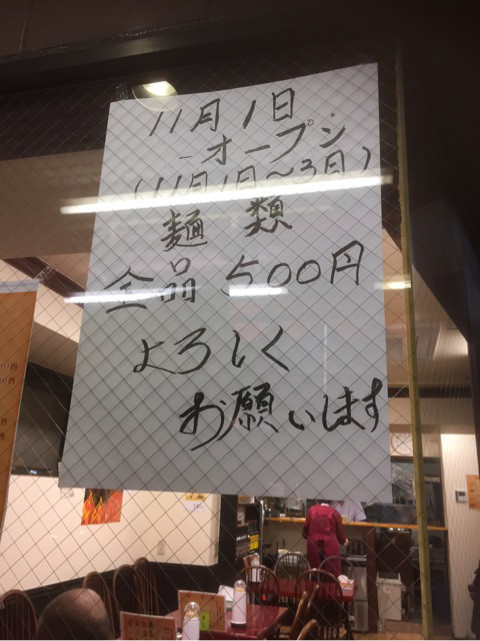 11月1日
-オープン
(11月1日~3日)
麺 類
全品 500円
よろしく
お願いします